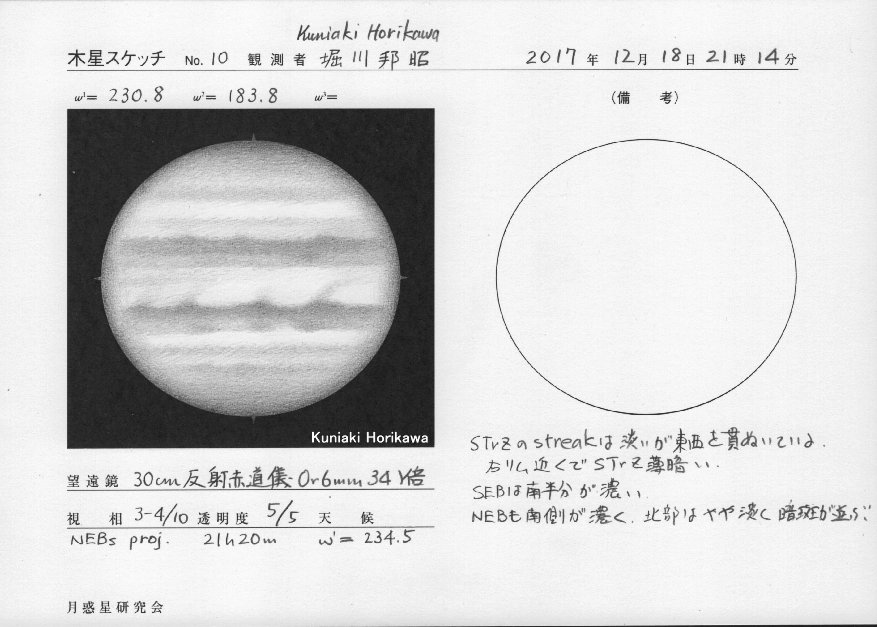 Kuniaki Horikawa
木星スケッチ No. 10 観測者 堀川邦昭 2017年 12月 18日 21時 14分
ω¹= 230.8 ω²= 183.8 ω³=
(備 考)
Kuniaki Horikawa
STrZのstreakは淡いが東西を貫ぬいている.
右リム近くでSTrZ薄暗い.
SEBは南半分が濃い.
NEBも南側が濃く. 北部はやや淡く暗斑が並ぶ
望遠鏡 30cm反射赤道儀 Or6mm 341倍
視 相 3-4/10 透明度 5/5 天 候
NEBs proj. 21h20m ω¹= 234.5
月惑星研究会